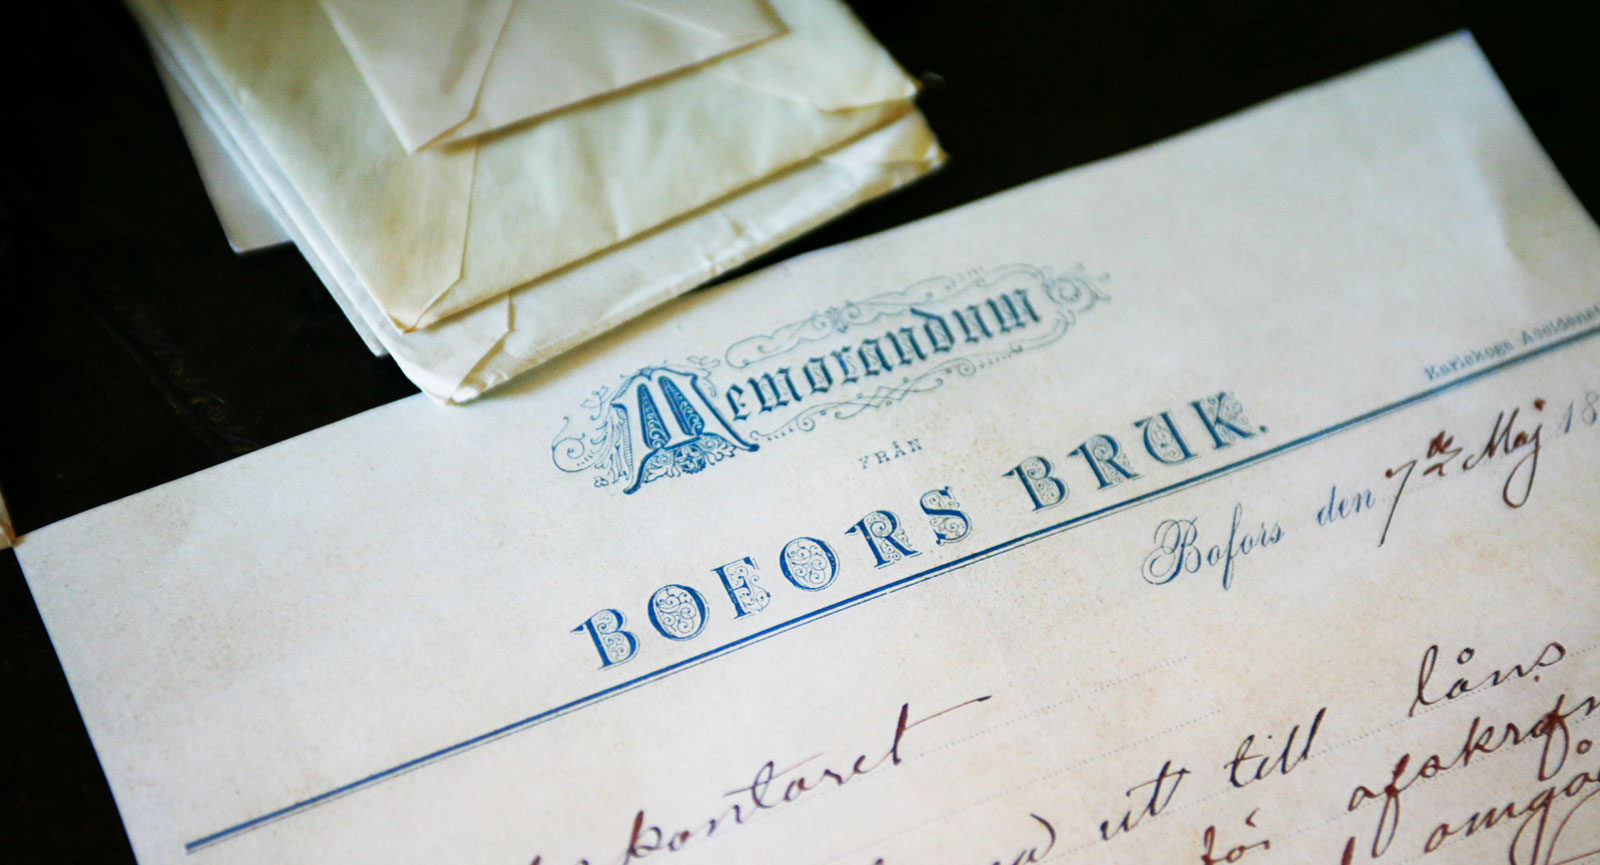 Memorandum
FRÅN
BOFORS BRUK.
Karlskoga Accidens
Bofors den 7de Maj 18
kontoret
ut till låns
för afskrifn
omgå